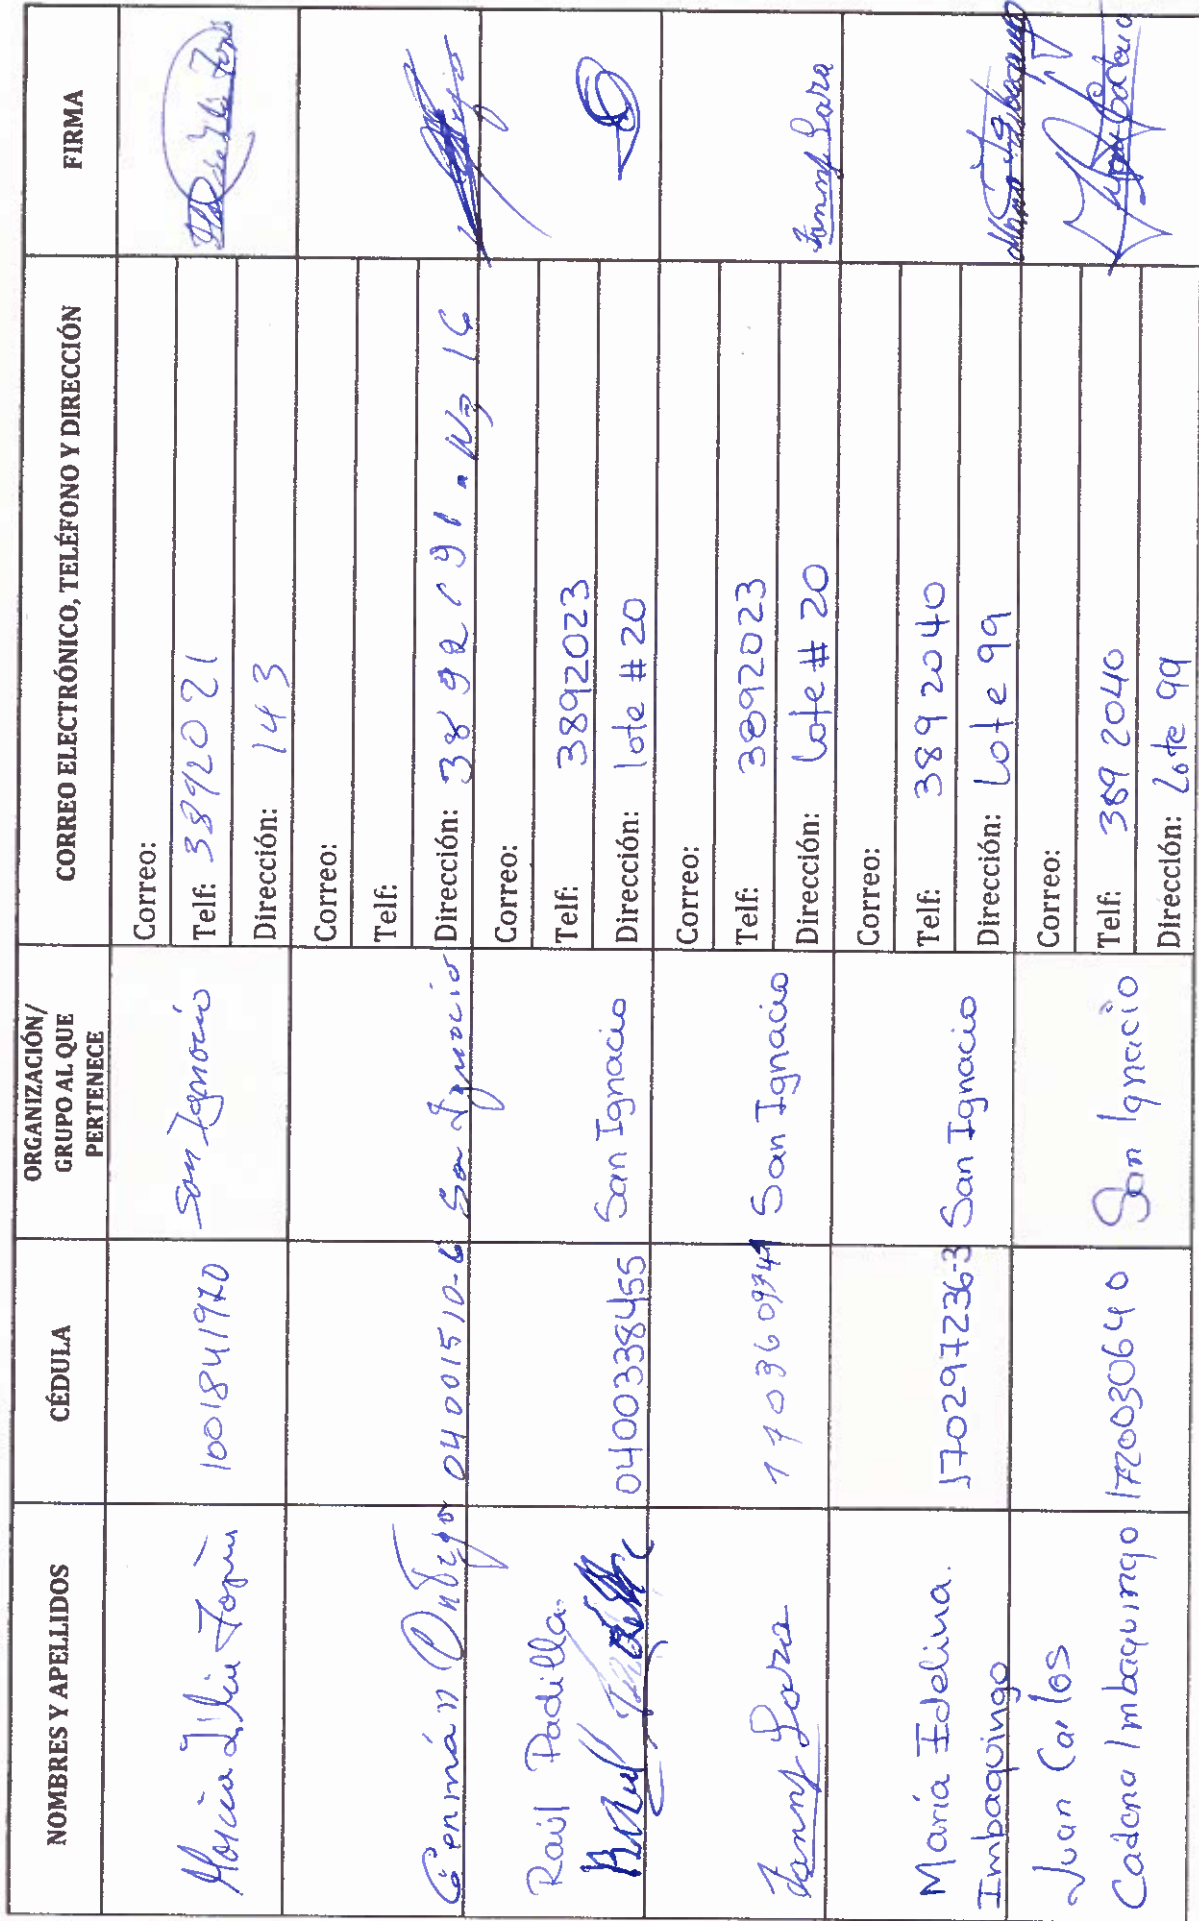 NOMBRES Y APELLIDOS
CÉDULA
ORGANIZACIÓN/
GRUPO AL QUE
PERTENECE
CORREO ELECTRÓNICO, TELÉFONO Y DIRECCIÓN
FIRMA
1001841970
San Ignacio
Correo:
Telf: 3892021
Dirección: 143
Germán
04001510-6
San Ignacio
Correo:
Telf:
Dirección: No 16
Raúl Padilla
0400338455
San Ignacio
Correo:
Telf: 3892023
Dirección: lote # 20
Fanny Lara
San Ignacio
Correo:
Telf: 3892023
Dirección: Lote # 20
Fanny Lara
María Edelina.
Imbaquingo
170297236-3
San Ignacio
Correo:
Telf: 3892040
Dirección: Lote 99
Juan Carlos
Cadena Imbaquingo
1720030640
San Ignacio
Correo:
Telf: 389 2040
Dirección: Lote 99